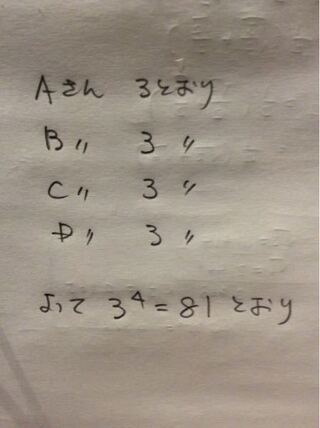 Aさん 3とおり
B 〃 3 〃
C 〃 3 〃
D 〃 3 〃
よって 3⁴=81とおり